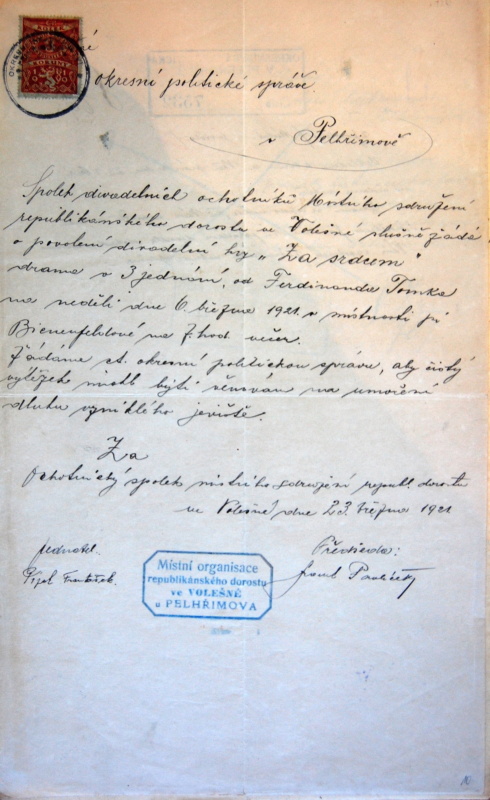 okresní politické správě
v Pelhřimově
Spolek divadelních ochotníků Místního sdružení
republikánského dorostu ve Volešné slušně žádá
o povolení divadelní hry „Za srdcem"
drama o 3 jednání, od Ferdinanda Tomka
na neděli dne 6. března 1921. v místnosti pí
Bienenfeldové na 7. hod. večer.
Žádáme ct. okresní politickou správu, aby čistý
výtěžek mohl býti věnován na umoření
dluhu vzniklého jeviště.
Za
Ochotnický spolek místního sdružení republ. dorostu
ve Volešné dne 23. března 1921
Jednatel.
Předseda:
Místní organisace
republikánského dorostu
ve VOLEŠNÉ
u PELHŘIMOVA